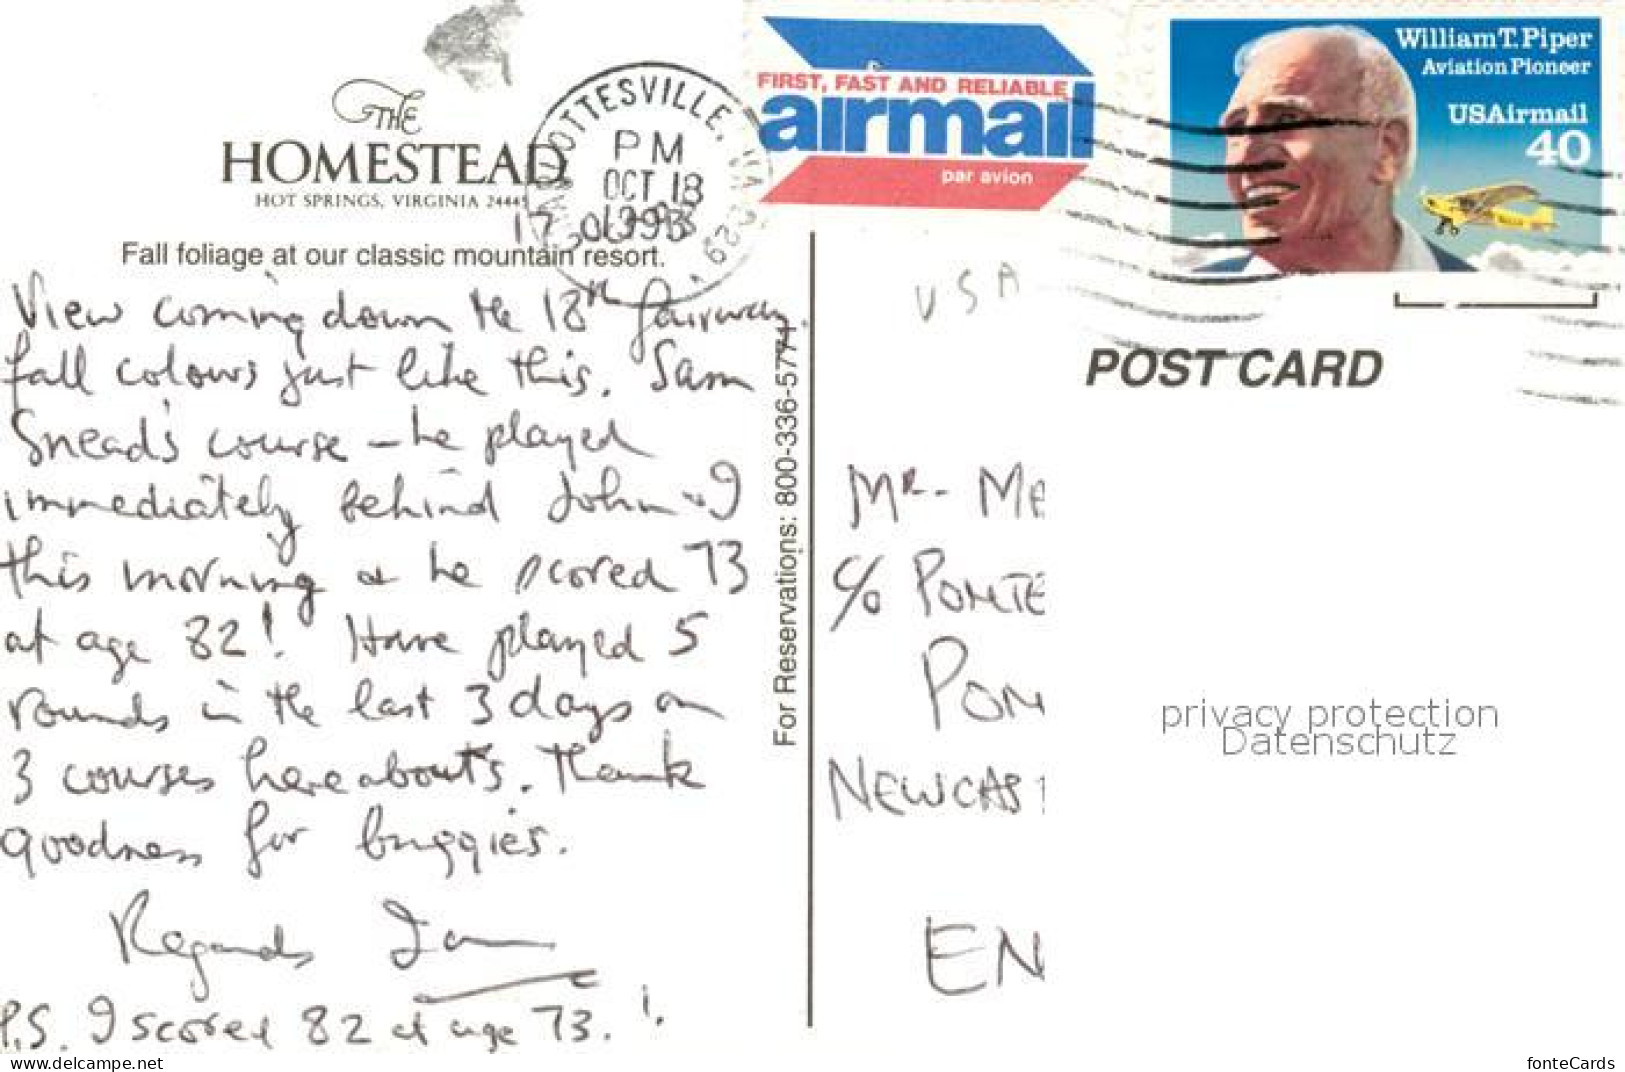 THE
HOMESTEAD
HOT SPRINGS, VIRGINIA 24445
Fall foliage at our classic mountain resort.
OTTESVILLE, VA 229
PM
OCT 18
1993
17
FIRST, FAST AND RELIABLE
airmail
par avion
William T. Piper
Aviation Pioneer
USAirmail
40
View coming down the 18th fairway.
fall colours just like this. Sam
Snead's course – he played
immediately behind John & I
this morning & he scored 73
at age 82! Have played 5
rounds in the last 3 days on
3 courses hereabouts. Thank
goodness for buggies.
Regards Ian
P.S. I scored 82 at age 73. !
For Reservations: 800-336-5771
USA
POST CARD
Mr. Ma
c/o PONTE
PON
NEWCAS
EN
privacy protection
Datenschutz
www.delcampe.net
fonteCards